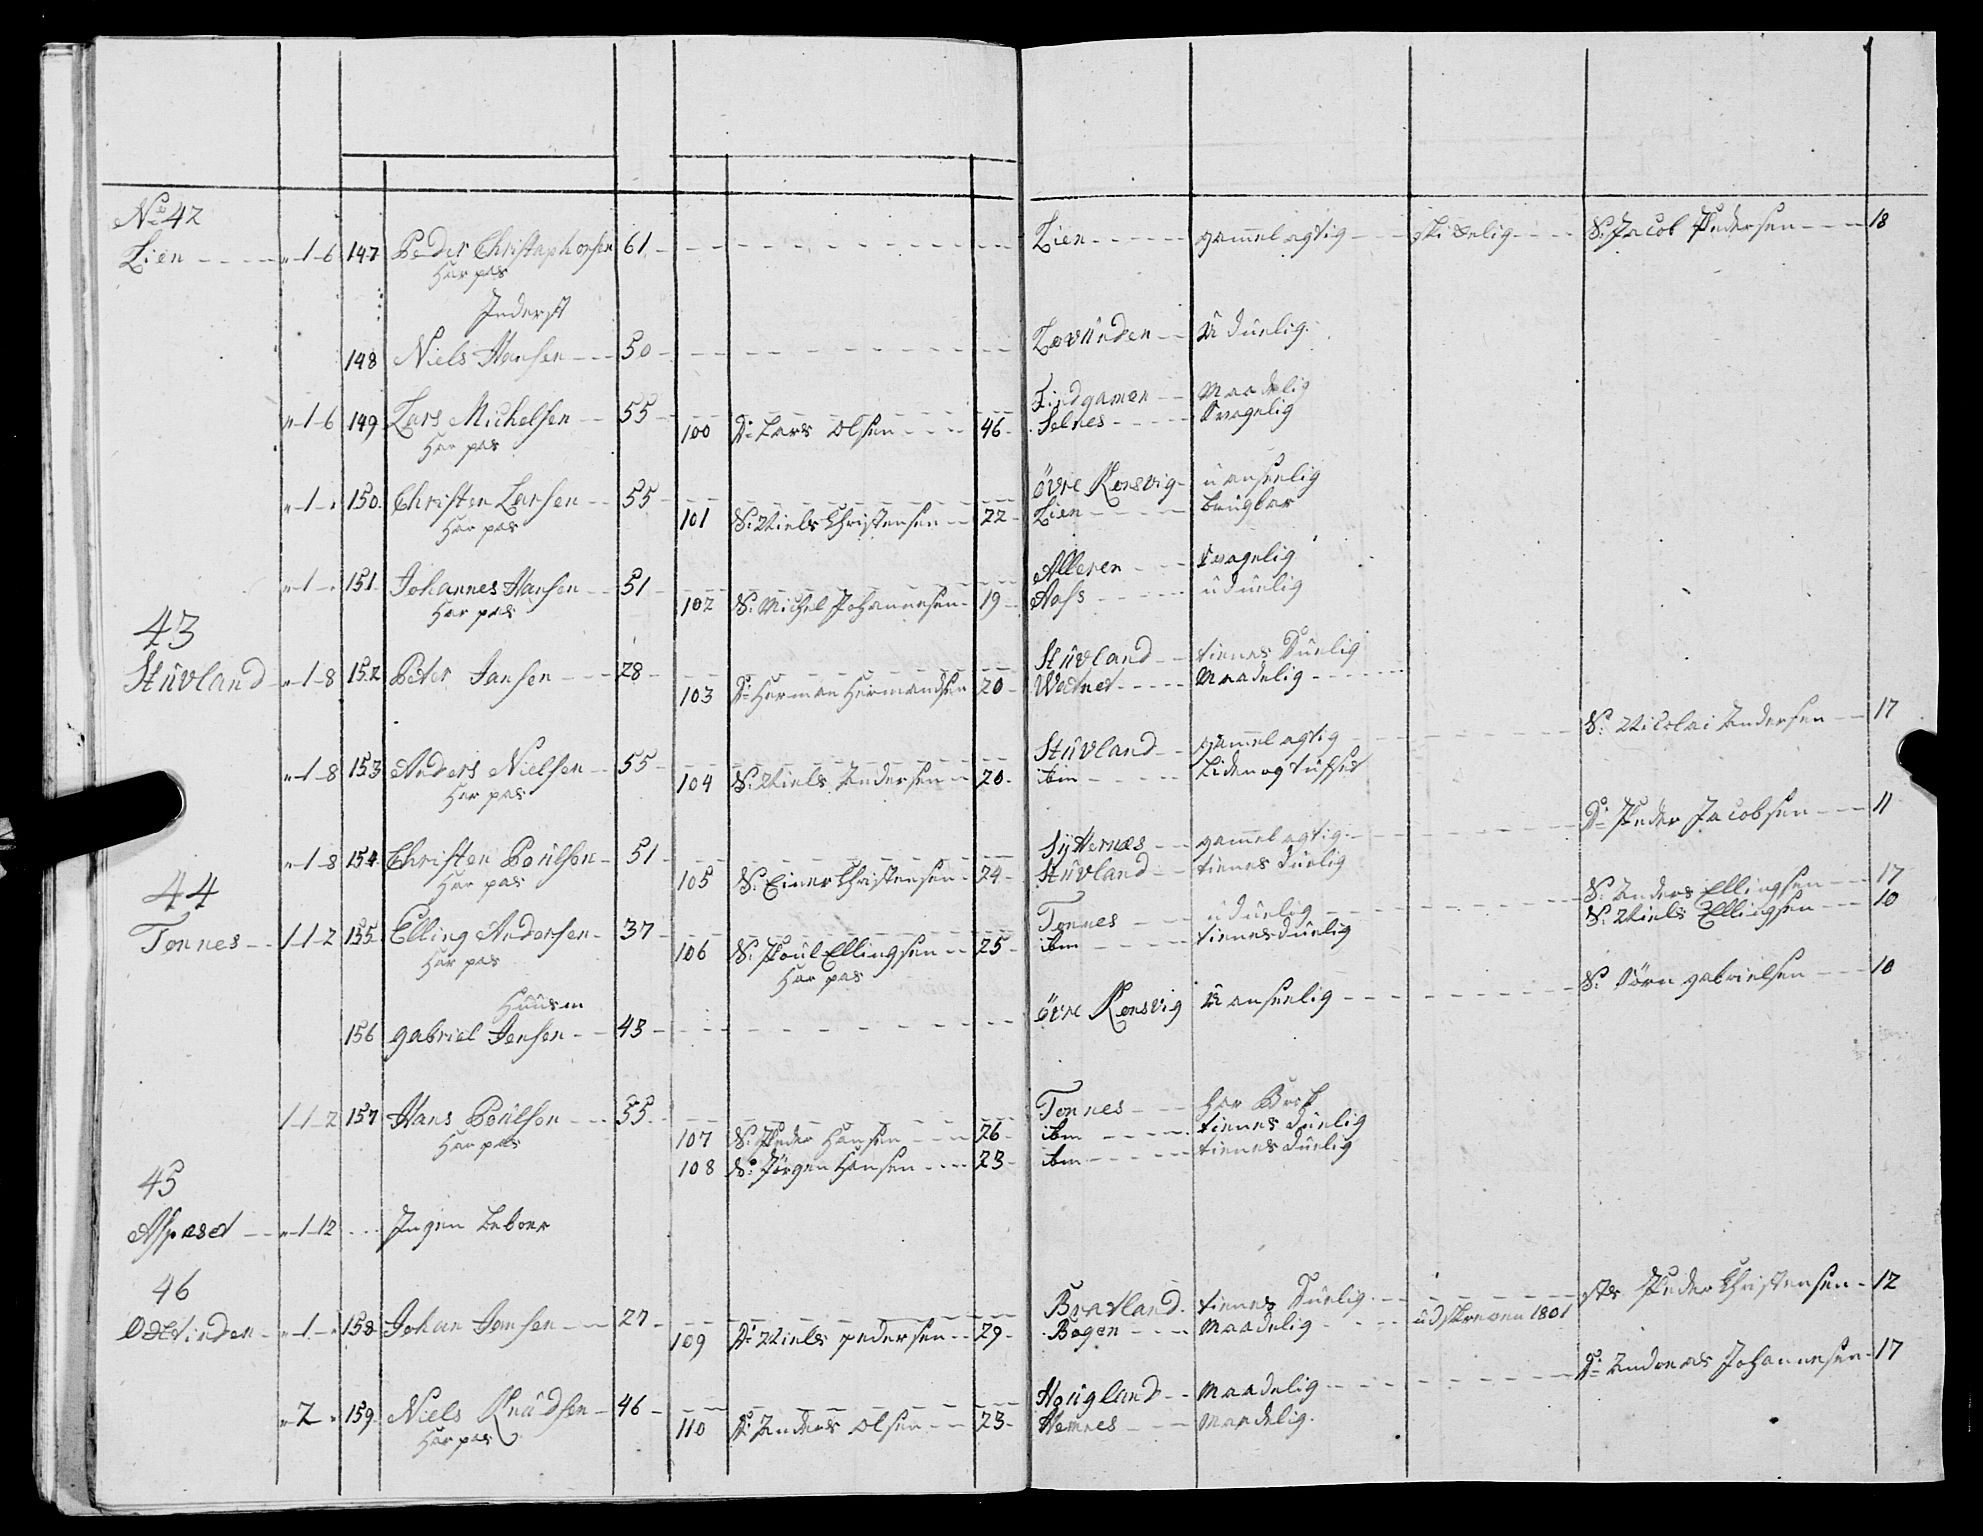 No 42
Lien - - - - " - 1 - 6 147 Peder Christophersen 61 - - - Lien - - - gammelagtig - - - skikkelig - - - S: Jacob Pedersen - - - 18
Har pas
Inderst
148 Niels Hansen - - - 50 - - - Lovunden - - uduelig
" - 1 - 6 149 Lars Michelsen - - 55 - - - Findgamen - - Maadelig
Har pas 100 D: Lars Olsen - - - 46 - Selnes - - - Svagelig
" - 1 - " 150 Christen Larsen - - 55 - - - övre Konsvig - uanseelig
Har pas 101 S: Niels Christensen - - 22 - Lien - - - brugbar
" - 1 - " 151 Johannes Hansen - - 51 - - - Alleren - - - Svagelig
Har pas 102 S: Michel Johannesen - 19 - Aass - - - uduelig
43
Stuvland - " - 1 - 8 152 Peter Jansen - - - 28 - - - Stuvland - - tienes Duelig
103 D: Herman Hermandsen 20 - Wednes - - - Maadelig - - -
" - 1 - 8 153 Anders Nielsen - - 55 - - - Stuvland - - gammelagtig - - - S: Nicolai Andersen - - 17
Har pas 104 S: Niels Andersen - - 20 - ibm - - - Liden og
" - 1 - 8 154 Christen Poulsen - 51 - - - Sytternæs - - gammelagtig - - - D: Peder Jacobsen - - - 11
Har pas 105 S: Einer Christensen - 24 - Stuvland - - tienes duelig
44
Tonnes - - 1 - 1 - 2 155 Elling Andersen - 37 - - - Tonnes - - - uduelig - - - S: Anders Ellingsen - - 17
Har pas 106 S: Poul Ellingsen - - 25 - ibm - - - tienesduelig S: Niels Ellingsen - - 10
Har pas
Huusm
156 gabriel Jensen - - 43 - - - övre Konsvig uanseelig - - - S: Sörn gabrielsen - - - 10
1 - 1 - 2 157 Hans Poulsen - - - 55 - - - Tonnes - - - har Brok
Har pas 107 S: Peder Hansen - - - 26 - ibm - - - tienes Duelig
108 S: Jörgen Hansen - - - 23 - ibm - - - tienes Duelig
45
Aspased - - " - 1 - 12 - - - Ingen Beboer
46
Oxtinden - " - 1 - " 158 Johan Jensen - - 27 - - - Bratland - tienes Duelig - - - Peder Christensen - 12
109 D: Niels pedersen - - 29 - Bogen - - - Maadelig - - - udskreven 1801
" - 2 - " 159 Niels Knudsen - 46 - - - Hougland - - Maadelig - - - D: Andreas Johannesen - 17
Har pas 110 D: Anders Olsen - - - 23 - Hemnes - - - Maadelig